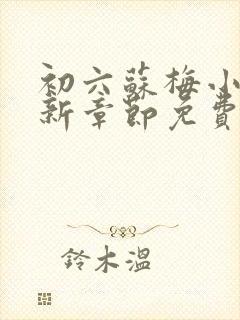 初六蘇梅小
新章節免費
鈴木溫